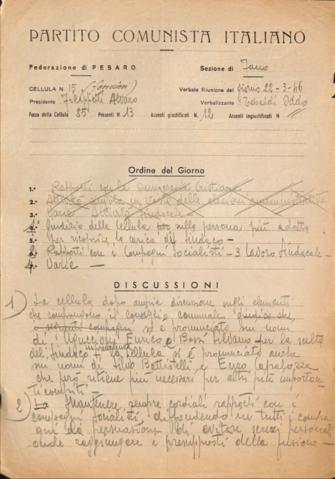 PARTITO COMUNISTA ITALIANO
Federazione di PESARO Sezione di Fano
CELLULA N. 15 Verbale Riunione del giorno 22-3-46
Presidente Filippetti Alvaro Verbalizzante Oddo
Forza della Cellula 25 Presenti N. 13 Assenti giustificati N. 12 Assenti ingiustificati N.
Ordine del Giorno
1.° Rapporti con la democrazia Cristiana
2.°
3.° Varie
1.° Giudizio della Cellula sulla persona più adatta
per ricoprire la carica di Sindaco -
2.° Rapporti con i Compagni Socialisti - 3 Lavoro sindacale -
4.° Varie -
DISCUSSIONI
1) La cellula dopo ampia discussione sugli elementi
che compongono il consiglio comunale
si è pronunciata sui nomi
di Enrico e Silvano per la scelta
del Sindaco. La cellula si è pronunciata anche
sui nomi di Aldo Battistelli e Enzo Capalozza
che però ritiene più necessari per altri più importanti
compiti -
2) Mantenere sempre cordiali rapporti con i
compagni socialisti, discutendo su tutti i
di evitare screzi personali
onde raggiungere i presupposti della fusione -